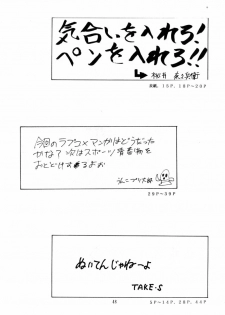 気合いを入れろ!
ペンを入れろ!!
19P. 18P~20P
今回のラブコメマンガはどうだった
かな? 次はスポーツ青春物を
おとどけするよお
29P~39P
ぬいてんじゃねーよ
TAKE-S
44
5P~14P, 28P, 44P